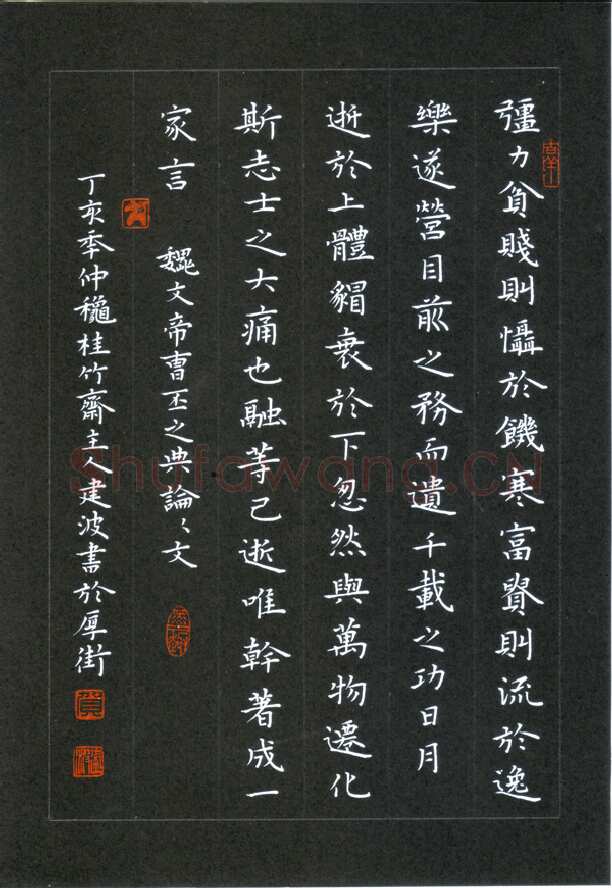 彊力貧賤則懾於饑寒富貴則流於逸
樂遂營目前之務而遺千載之功日月
逝於上體貌衰於下忽然與萬物遷化
斯志士之大痛也融等已逝唯幹著成一
家言
魏文帝曹丕之典論〻文
丁亥季仲穐桂竹齋主人建波書於厚街
Shufawang.cn